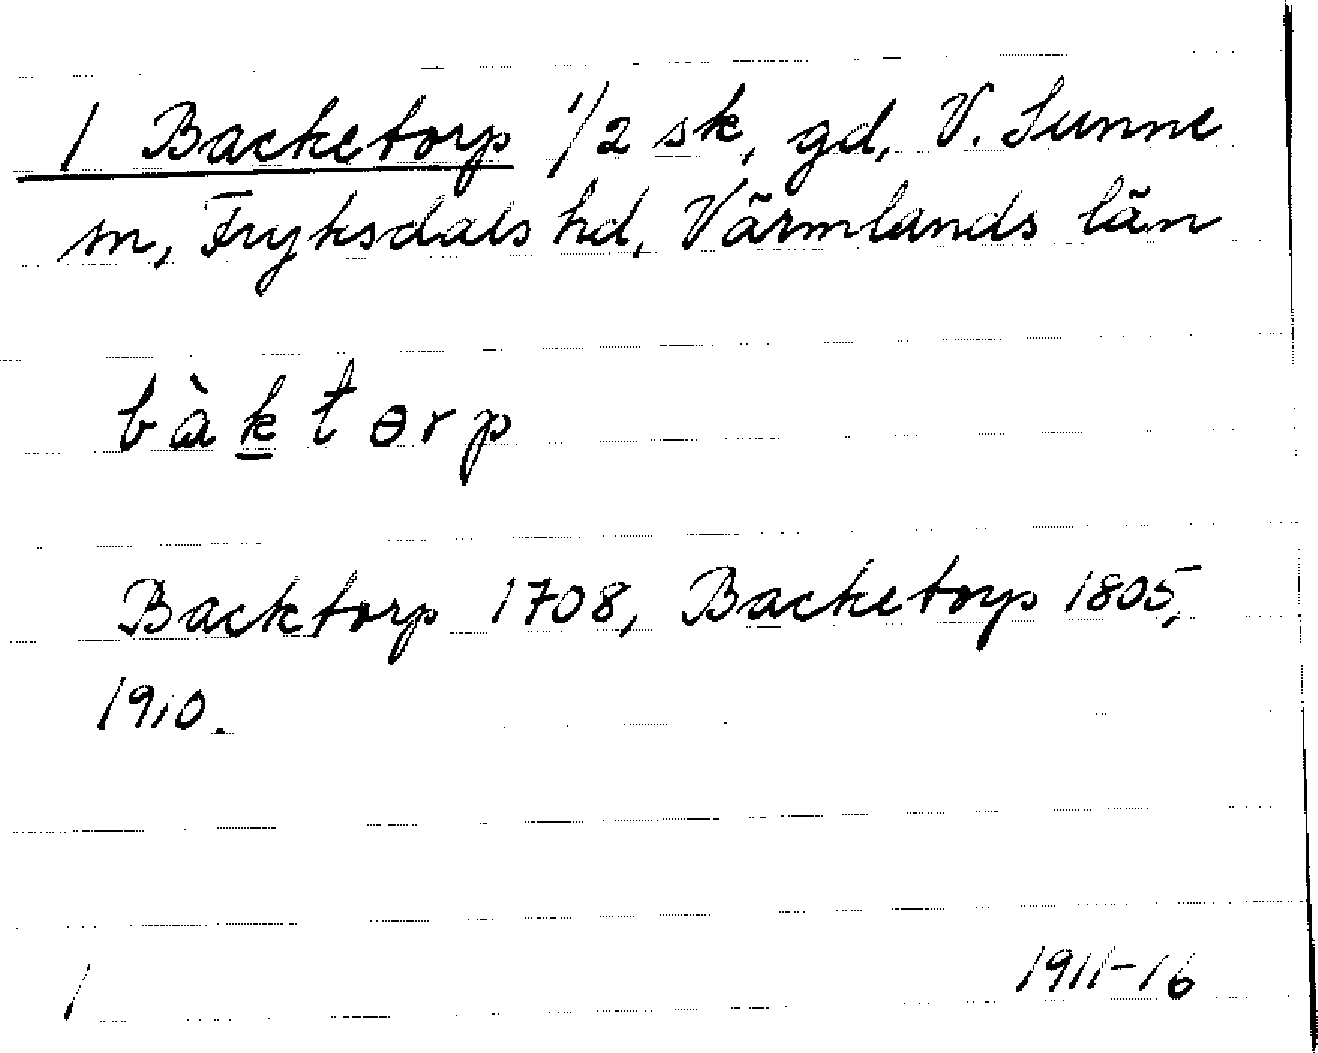 1 Backetorp 1/2 sk, gd, V. Sunne
sn, Fryksdals hd, Värmlands län
bàktɵrp
Backtorp 1708, Backetorp 1805,
1910.
1 1911-16